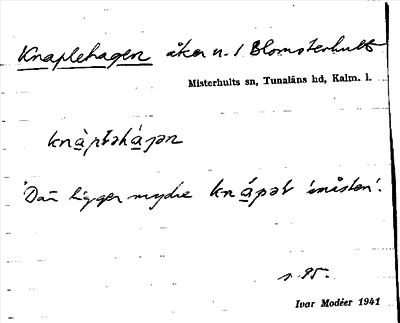 Knaplehagen åker n. 1 Blomsterhult
Misterhults sn, Tunaläns hd, Kalm. l.
knàpləhágən
Där ligger mycke knápət
s. 95.
Ivar Modéer 1941